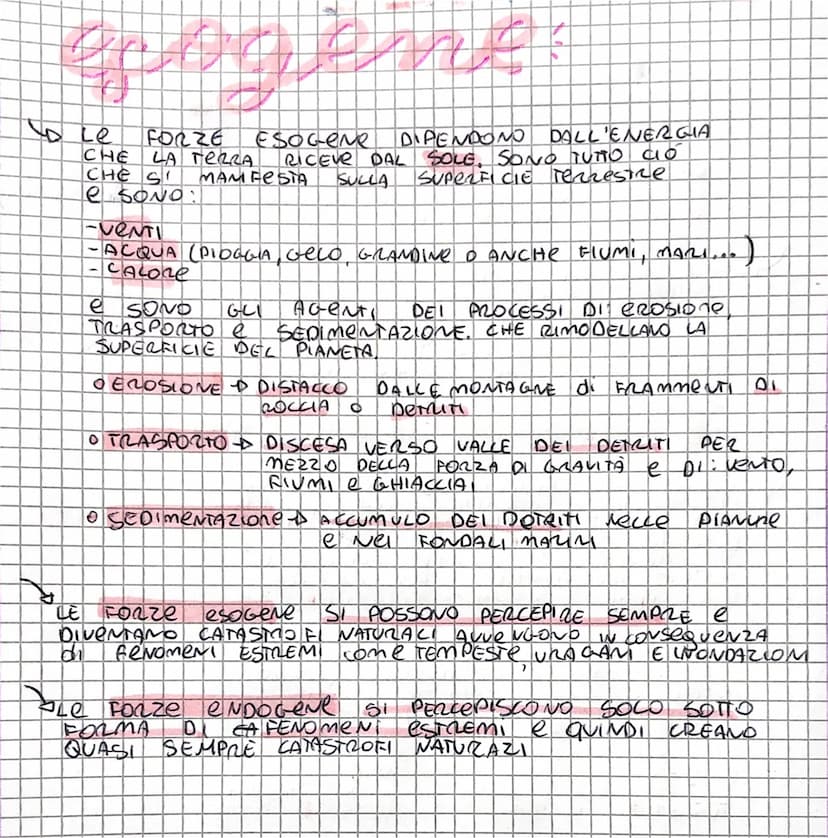 esogene:
Le FORZE ESOGENE DIPENDONO DALL'ENERGIA
CHE LA TERRA RICEVE DAL SOLE. SONO TUTTO CIÒ
CHE SI MANIFESTA SULLA SUPERFICIE TERRESTRE
e SONO:
-VENTI
-ACQUA (PIOGGIA, GELO, GRANDINE O ANCHE FIUMI, MARI...)
- CALORE
e SONO GLI AGENTI DEI PROCESSI DI: EROSIONE,
TRASPORTO e SEDIMENTAZIONE. CHE RIMODELLANO LA
SUPERFICIE DEL PIANETA.
o EROSIONE → DISTACCO DALLE MONTAGNE di FRAMMENTI DI
ROCCIA O DETRITI
o TRASPORTO → DISCESA VERSO VALLE DEI DETRITI PER
MEZZO DELLA FORZA DI GRAVITÀ e DI: VENTO,
FIUMI e GHIACCIAI
o SEDIMENTAZIONE → ACCUMULO DEI DETRITI NELLE PIANURE
e NEI FONDALI MARINI
LE FORZE ESOGENE SI POSSONO PERCEPIRE SEMPRE e
DIVENTANO CATASTROFI NATURALI AVVENGONO IN CONSEGUENZA
di FENOMENI ESTREMI COME TEMPESTE, URAGANI E INONDAZIONI
Le FORZE ENDOGENE SI PERCEPISCONO SOLO SOTTO
FORMA DI FENOMENI ESTREMI e QUINDI CREANO
QUASI SEMPRE CATASTROFI NATURALI